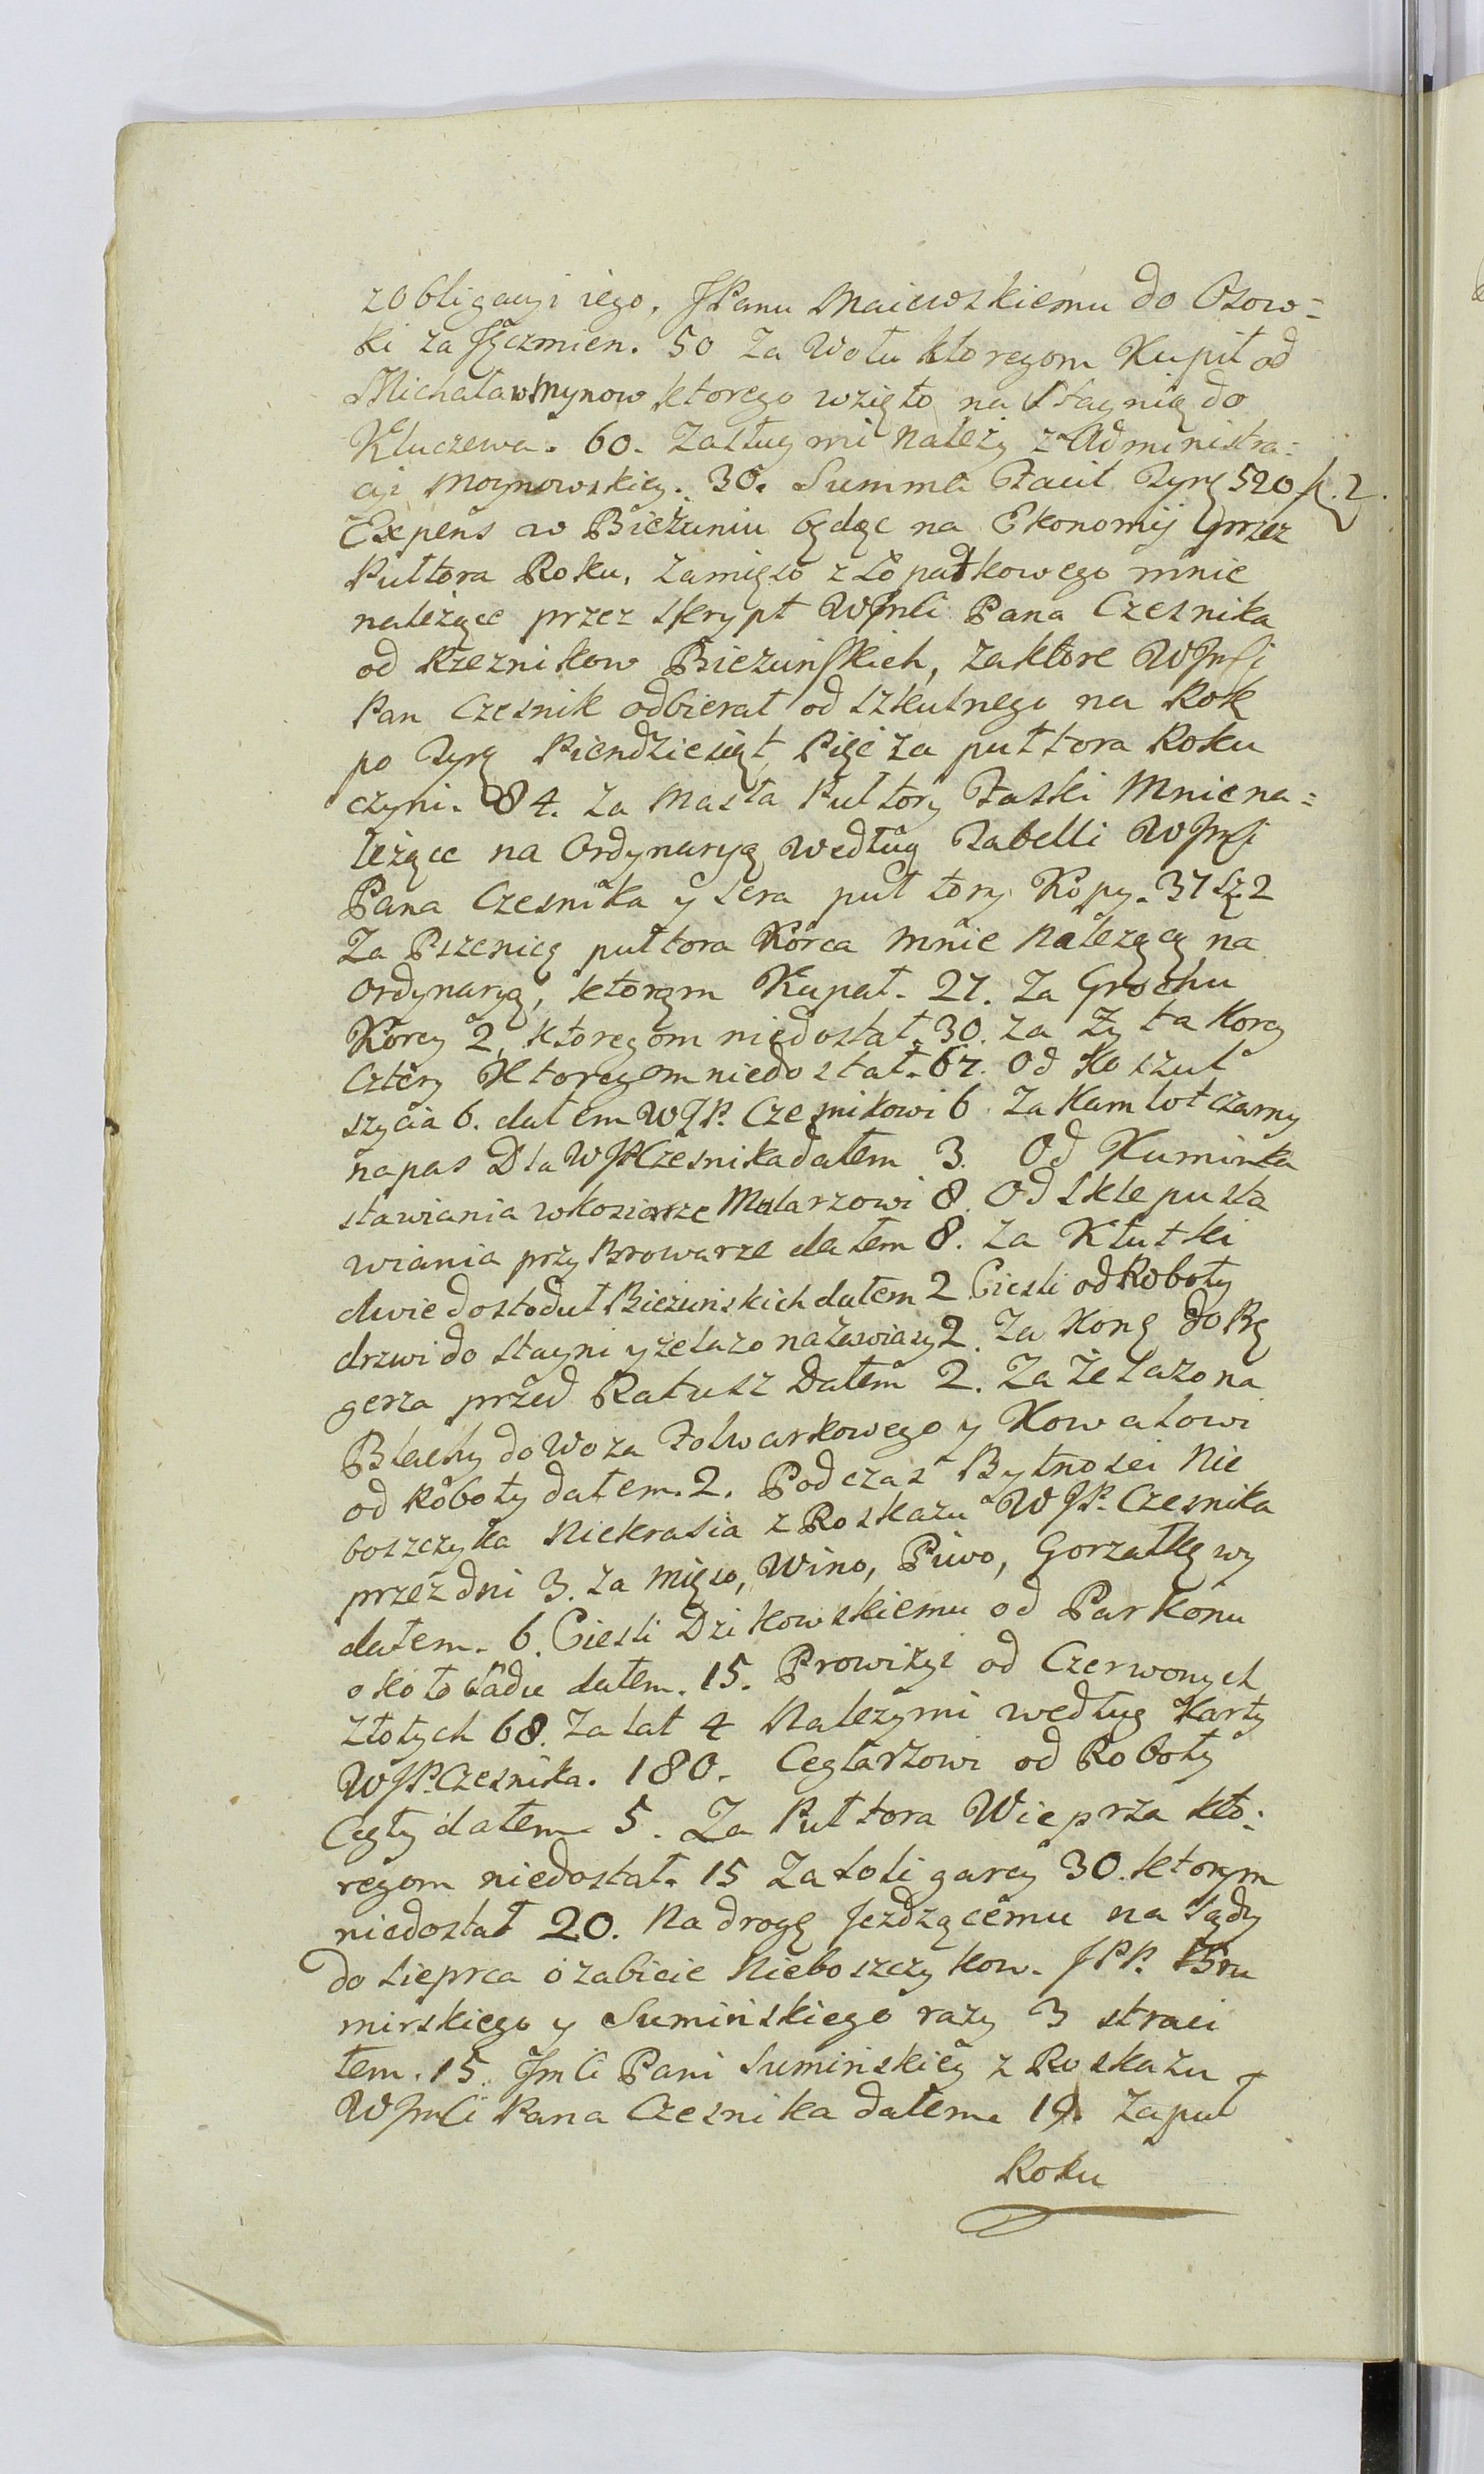 zobligacyi iego. JPanu Maiewskiemu do Osow=
ki za Jęczmien. 50 Za Wołu ktoregom Kupił od
Michała w Mynow ktorego wzięto na Staynią do
Kluczewa. 60. Zasług mi Należy z Administra=
cyi Moynowskiey. 30. Summa Facit Tynf 520 ſz. 2.
Expens w Bieżuniu będąc na Ekonomij przez
Pułtora Roku, za mięso z Łopatkowego mnie
należące przez skrypt WJmCi Pana Czesnika
od Rzeznikow Bieżunskich, za ktore WJmCi
Pan Czesnik odbierał od szkulnego na Rok
po Tynf Piendziesiąt Pięć za pułtora Roku
czyni. 84. za Masła Pułtory Faski Mnie na=
leżące na Ordynaryą według Tabelli WJmCi
Pana Czesnika y sera puł tory Kopy. 37 sz. 2
Za Pszenicę pułtora Korca mnie Należącą na
Ordynaryą, ktorąm Kupał. 27. Za Grochu
Korcy 2, ktoregom niedostał. 30. za Zyta Korcy
Cztery Ktoregom niedostał. 67. Od Koszul
szycia 6. dałem WJP. Czesnikowi 6. Za Kamlot czarny
na pas Dla WJP Czesnika dałem 3. Od Kuminka
stawiania w koziarze Mularzowi 8. Od Sklepu sta
wiania przy Browarze dałem 8. za Kłutki
dwie do stoduł Bieżunskich dałem 2 Ciesli od Roboty
drzwi do stayni y żelazo na zawiasy 2. Za Konę do Rę
gerza przed Ratusz Dałem 2. Za Żelazo na
Blachy do Woza Folwarkowego y Kowalowi
od Roboty dałem. 2. Podczas Bytnosci Nie
boszczyka Niekrasia z Roskazu WJP. Czesnika
przez dni 3. za mięso, Wino, Piwo, Gorzałkę wy
dałem. 6. Ciesli Dzikowskiemu od Parkonu
około Sadu dałem. 15. Prowizyi od Czerwonych
Złotych 68. za lat 4 Należy mi według Karty
WJP. Czesnika. 180. Ceglarzowi od Roboty
Cegły dałem 5. Za Pułtora Wieprza kto=
regom niedostał. 15 Za soli garcy 30. ktorym
niedostał 20. Na drogę Jeżdzącemu na Sądy
do Sieprca o zabicie Nieboszczykow. JPP. Bru
mirskiego y Sumińskiego razy 3 straci
łem. 15. JmCi Pani Suminskiey z Roskazu
WJmCi Pana Czesnika dałem. 19. Za puł
Roku